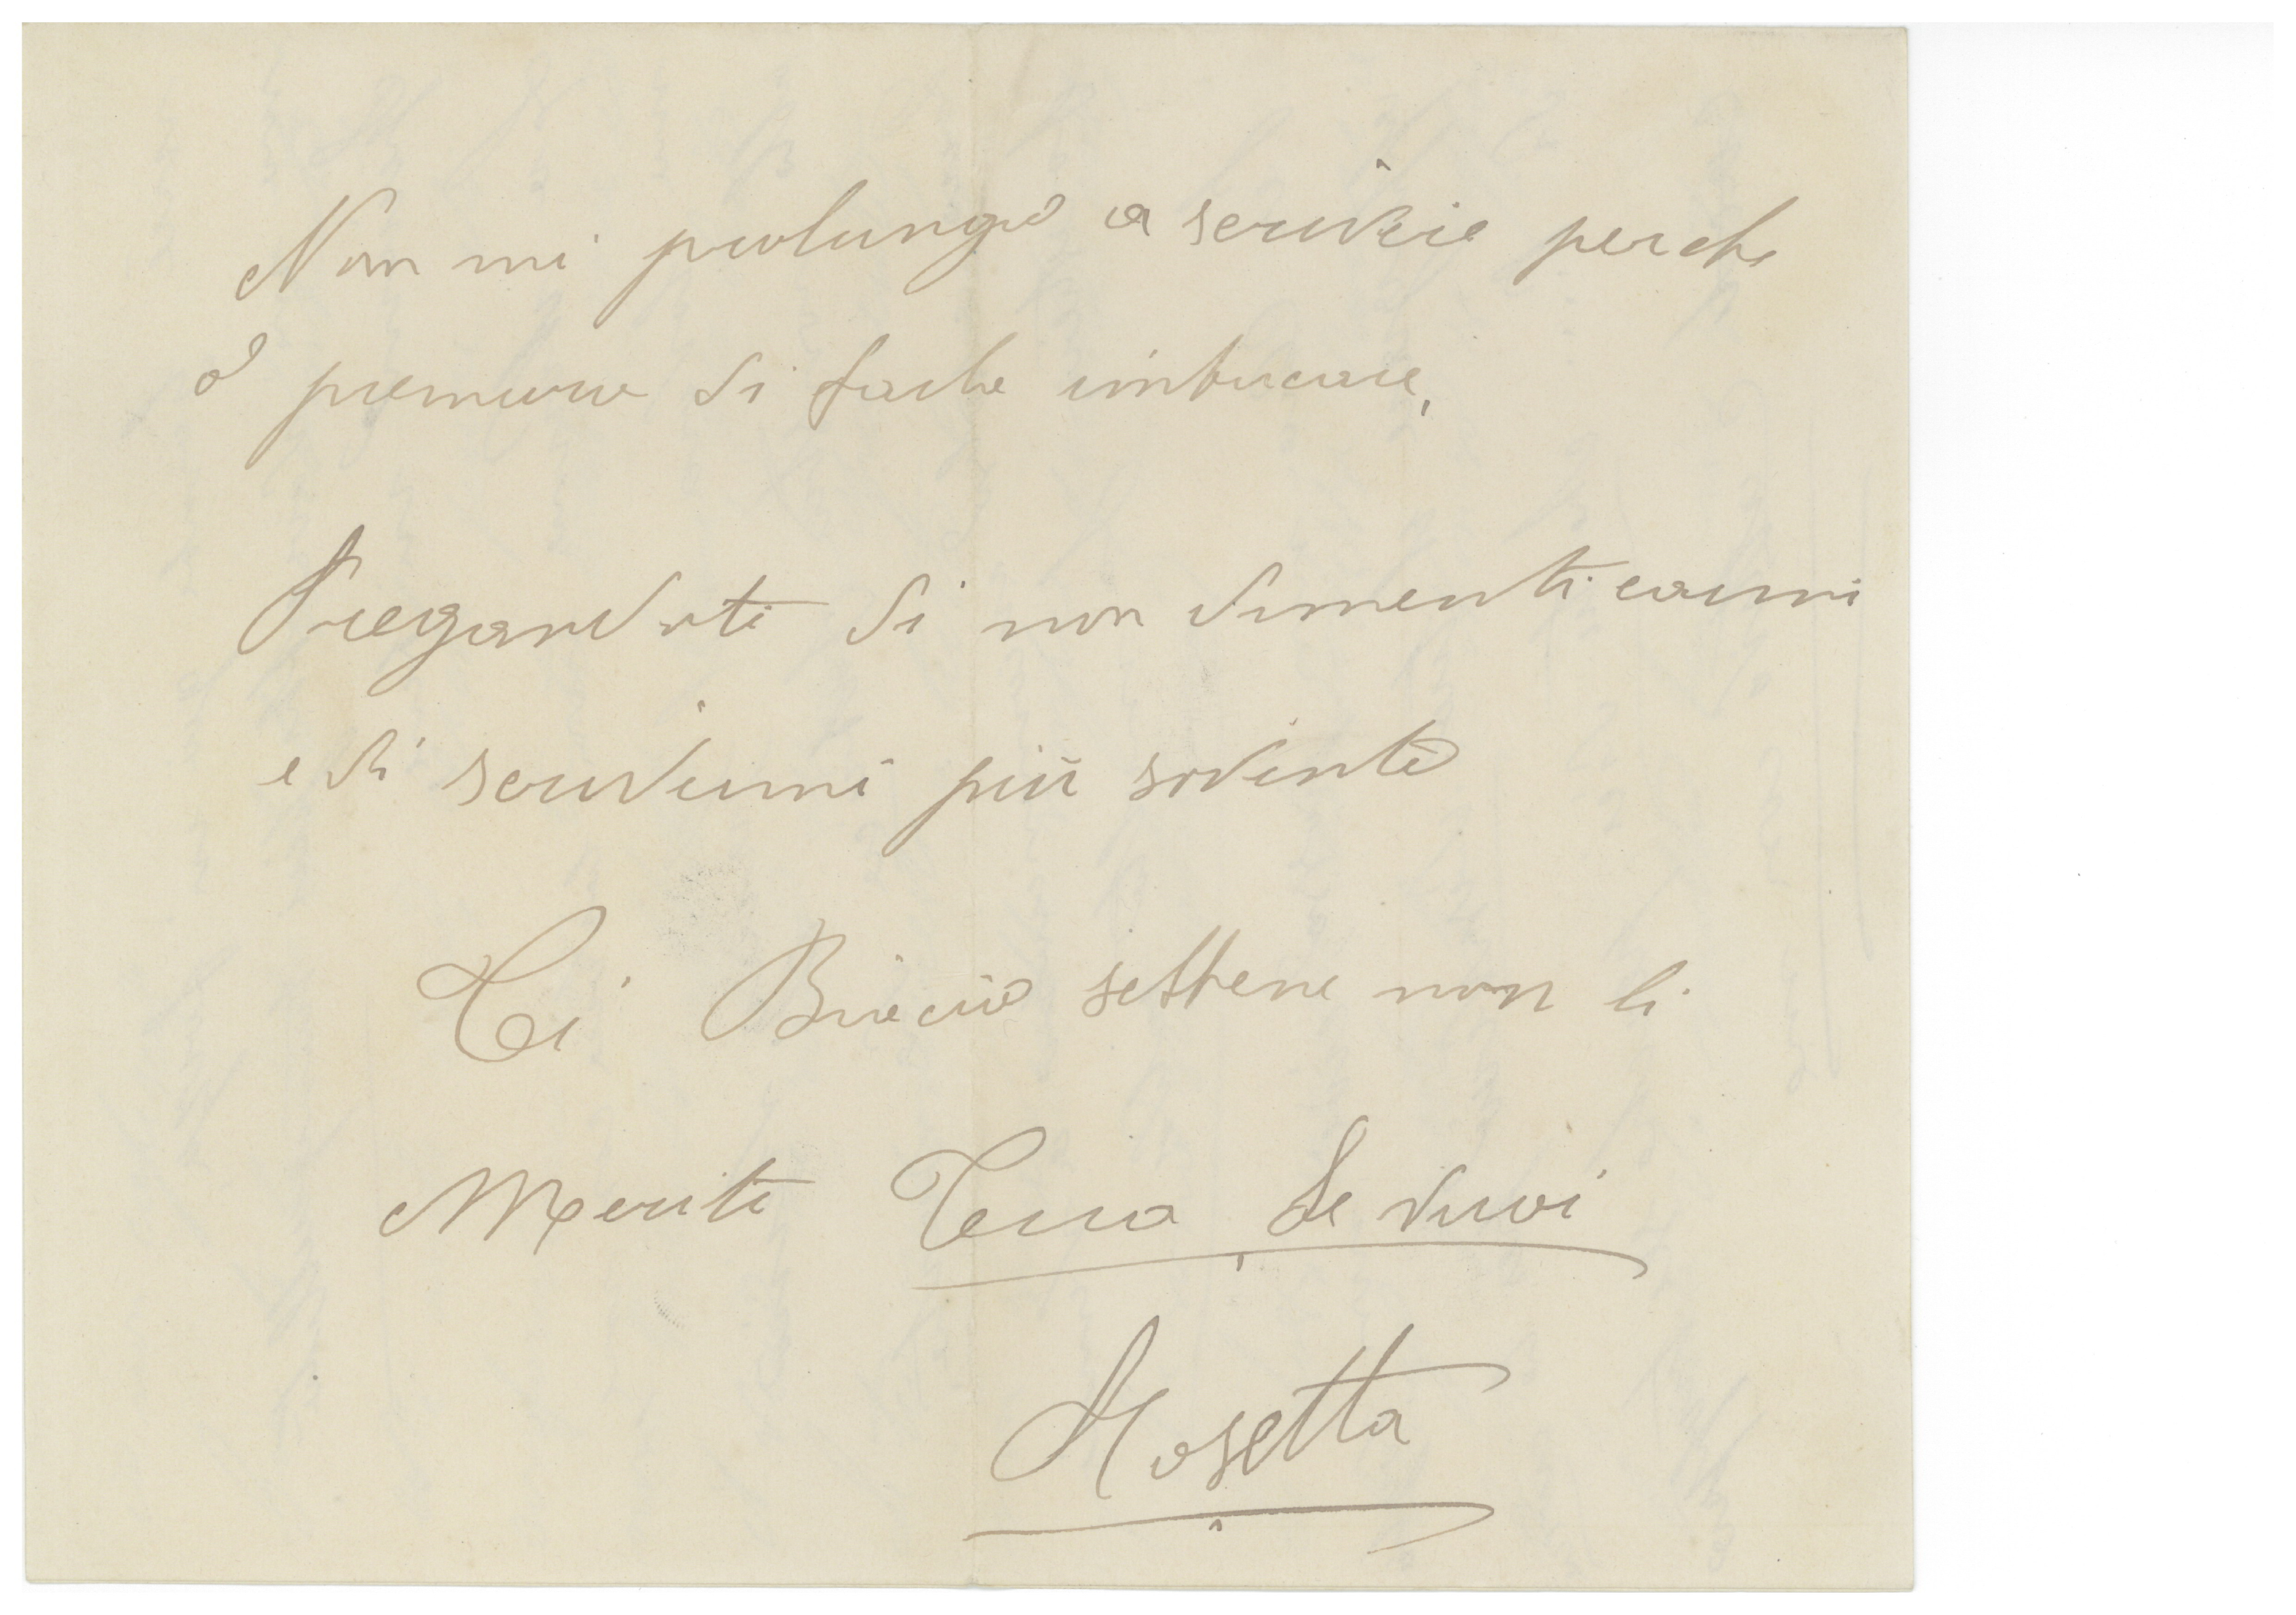 Non mi prolungo a scrivere perche
ò premura di farla imbucare,
Pregandoti di non dimenticarmi
e di scrivermi più sovente
Ti Bracio sebbene non li
Meriti Tua
Rosetta